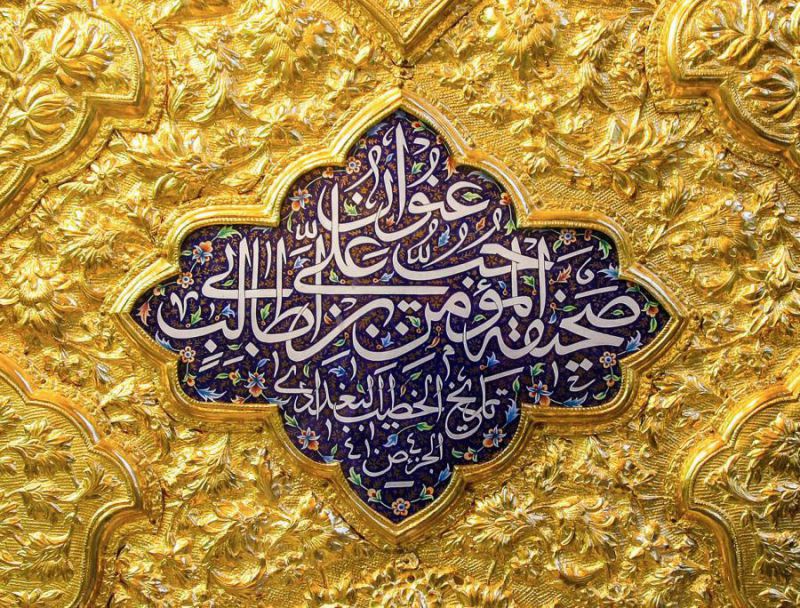 عنوان
صحيفة المؤمن حُبّ عليّ بن ابي طالب
تاريخ الخطيب البغدادي
الجزء ٤ ص ٤١٠